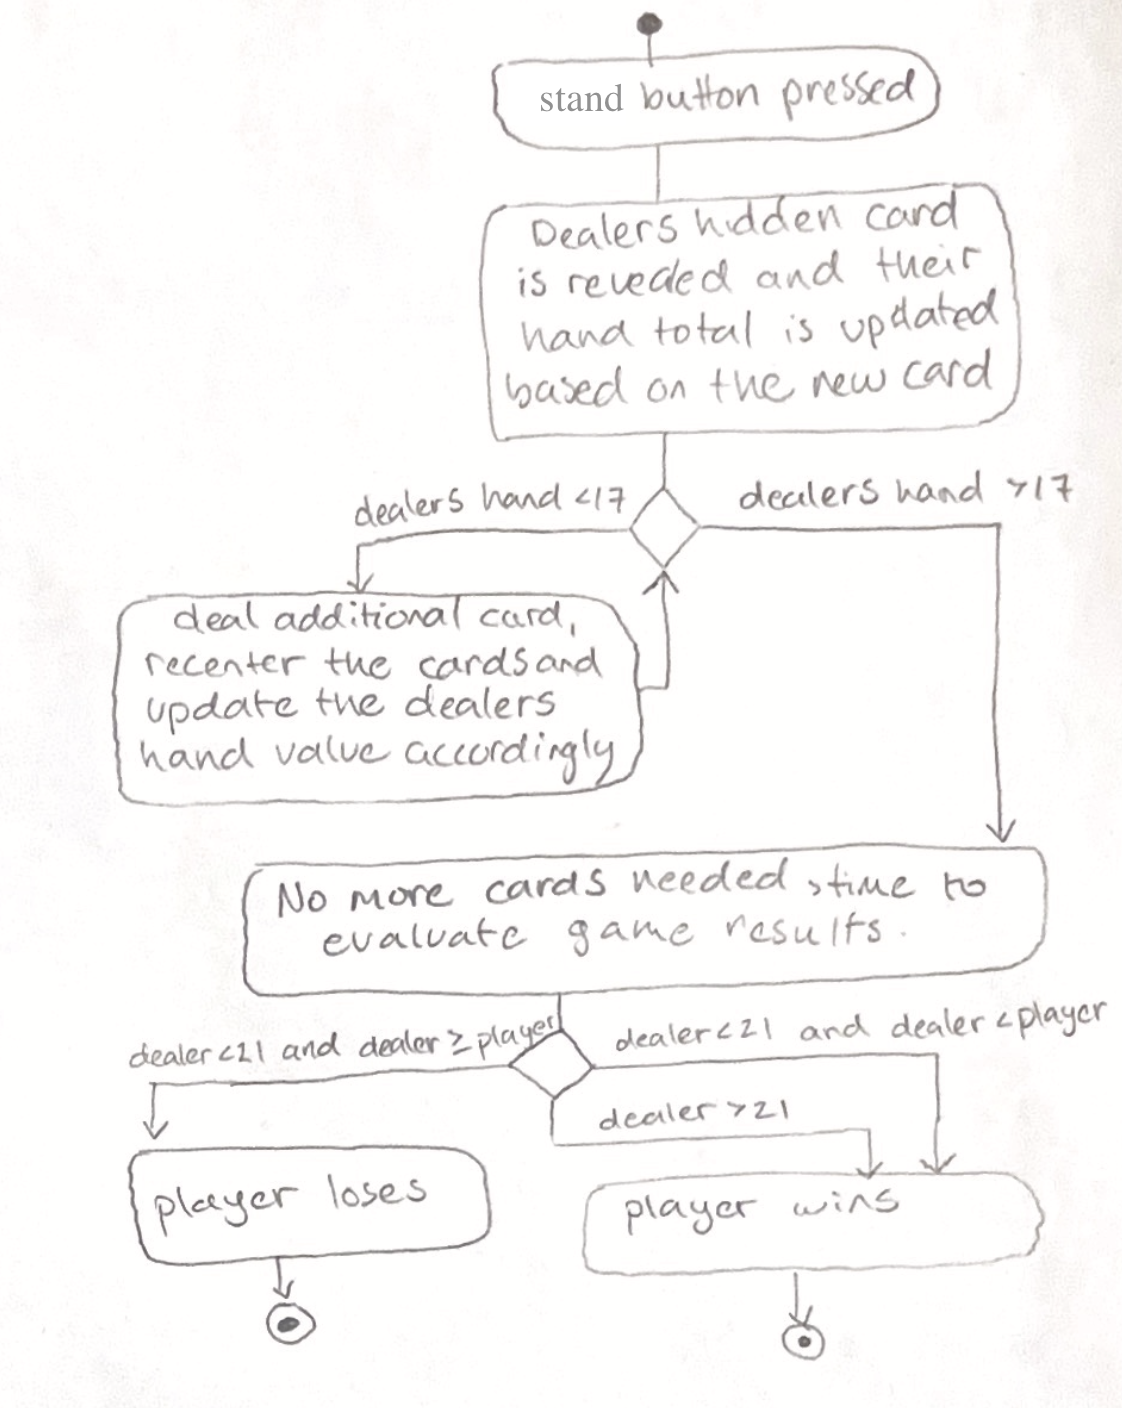 stand button pressed
Dealers hidden card
is revealed and their
hand total is updated
based on the new card
dealers hand <17
dealers hand >17
deal additional card,
recenter the cards and
update the dealers
hand value accordingly
No more cards needed, time to
evaluate game results.
dealer<21 and dealer ≥ player
dealer<21 and dealer < player
dealer >21
player loses
player wins